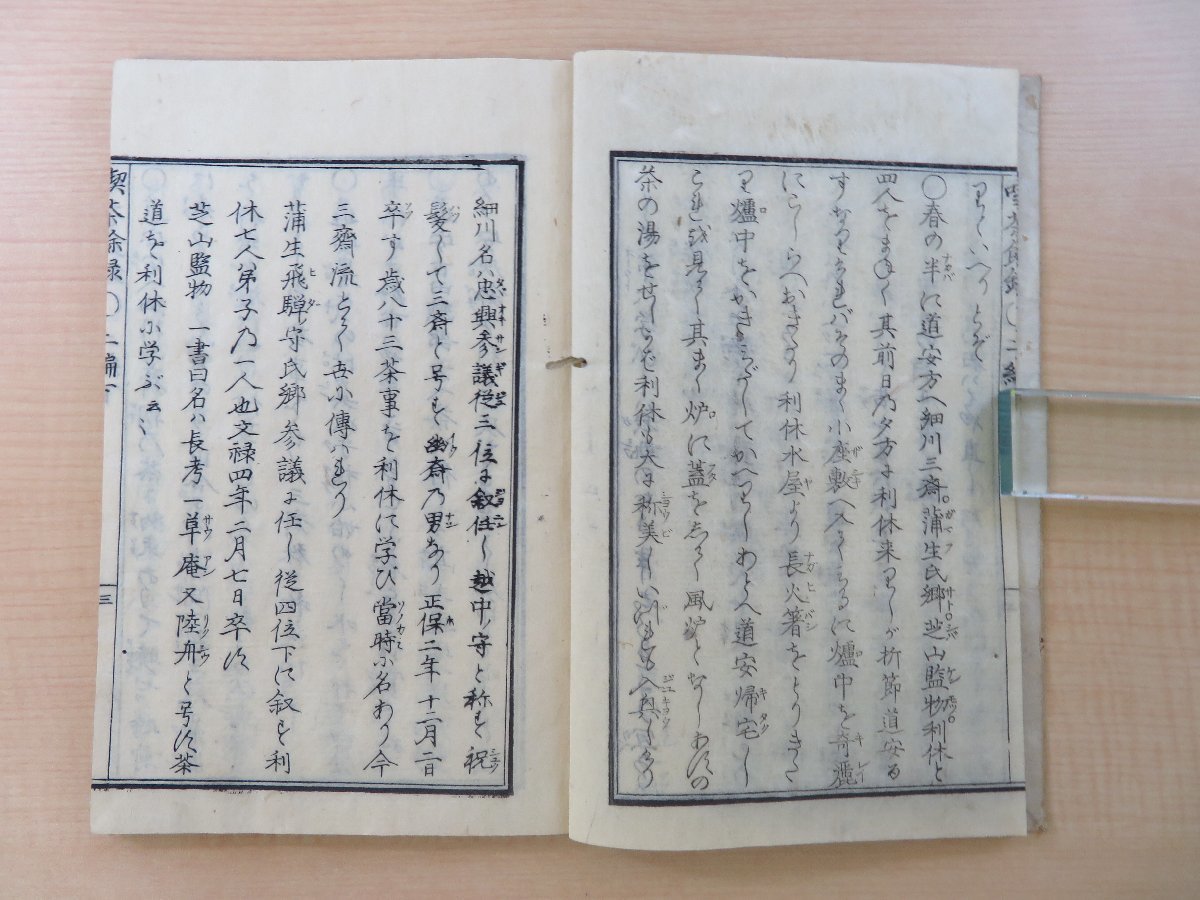 りといへりとぞ
〇春の半に道安方へ細川三斎。蒲生氏郷。芝山監物。利休と
四人をまねく其前日乃夕方に利休来りしが折節道安る
すなりければそのまゝ小座敷へ入てみるに爐中を奇麗
にこしらへおきたり利休水屋より長火箸をとりきた
り爐中をかきくづしてかへりしあとへ道安帰宅し
これを見て其まゝ炉に蓋をして風炉となしあすの
茶の湯をせしかば利休も大に称美しいづれも入興しけり
細川名ハ忠興参議従三位に叙任し越中ノ守と称す祝
髪して三斎と号す幽斎乃男なり正保二年十二月二日
卒す歳八十三茶事を利休に学び當時に名あり今
三齋流とて世に傳ハれり
蒲生飛騨ノ守氏郷参議に任し従四位下に叙す利
休七人ハ弟子乃一人也文禄四年二月七日卒す
芝山監物 一書曰名ハ長考一草庵又陸舟と号す茶
道を利休に学ぶ云々
喫茶余録〇二編下 三